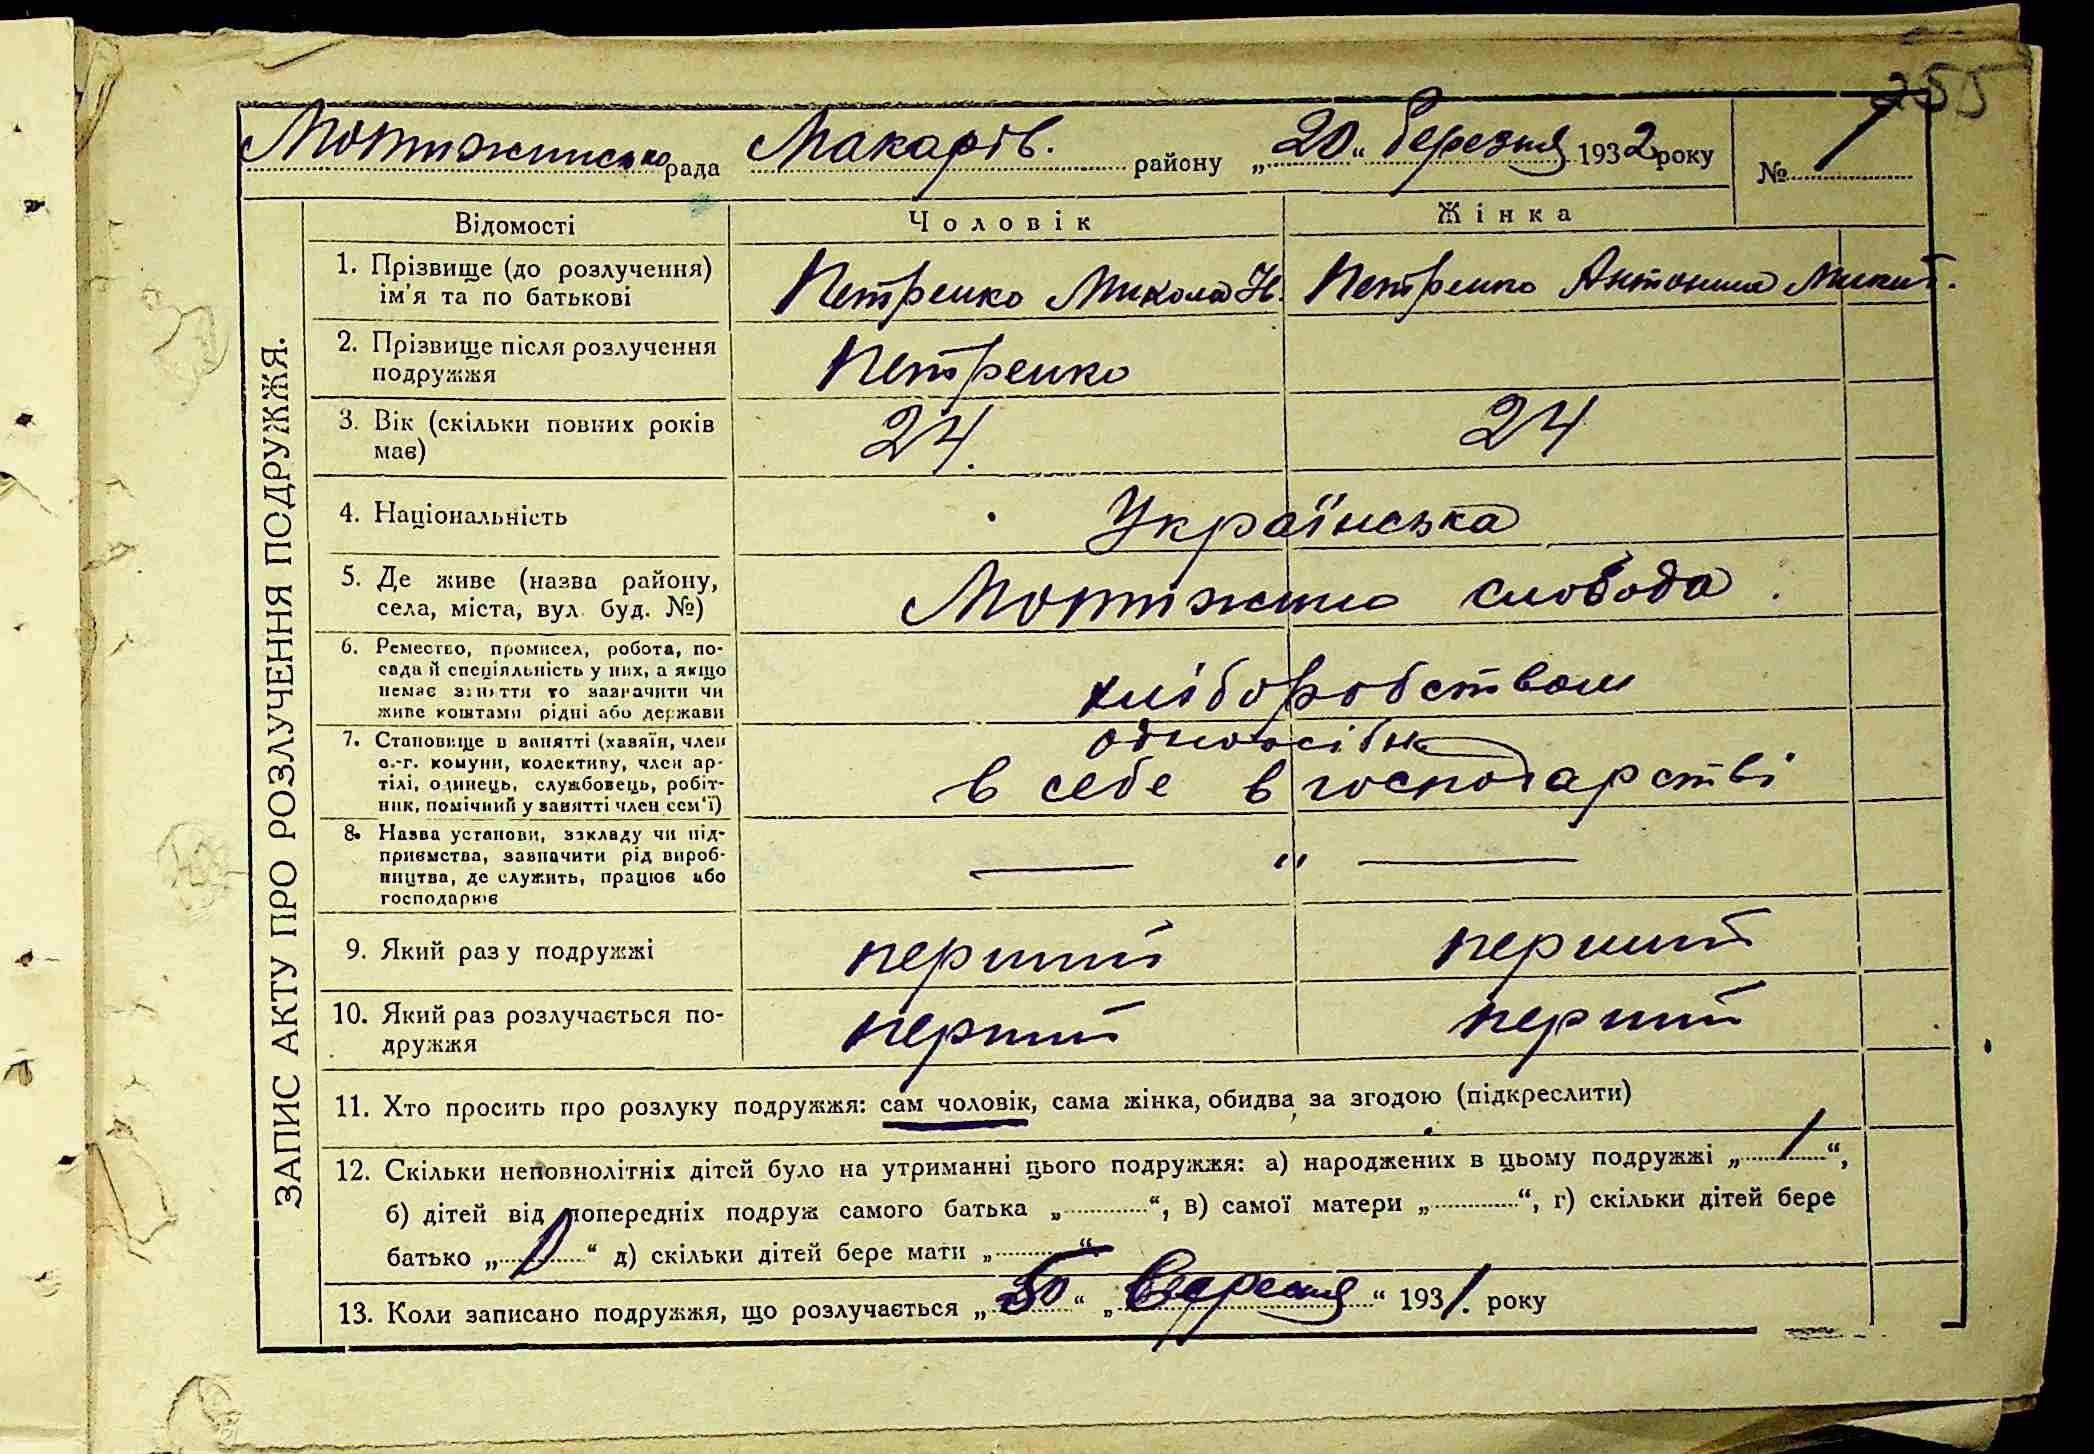 255
Мотижинсько рада Макарів. району „20“ березня 1932 року № 1
ЗАПИС АКТУ ПРО РОЗЛУЧЕННЯ ПОДРУЖЖЯ.
Відомості Чоловік Жінка
1. Прізвище (до розлучення) Петренко Микола Н. Петренко Антонина Микит.
ім'я та по батькові
2. Прізвище після розлучення Петренко
подружжя
3. Вік (скільки повних років 24. 24
має)
4. Національність Українська
5. Де живе (назва району, Мотижин слобода.
села, міста, вул. буд. №)
6. Ремество, промисел, робота, по-
сада й спеціяльність у них, а якщо хліборобством
немає заняття то зазначити чи
живе коштами рідні або держави
7. Становище в занятті (хазяїн, член одноосібн
с.-г. комуни, колективу, член ар-
тілі, одинець, службовець, робіт- в себе в господарстві
ник, помічний у занятті член сем'ї)
8. Назва установи, закладу чи під-
приємства, зазначити рід вироб- — " —
ництва, де служить, працює або
господарює
9. Який раз у подружжі перший перший
10. Який раз розлучається по- перший перший
дружжя
11. Хто просить про розлуку подружжя: сам чоловік, сама жінка, обидва за згодою (підкреслити)
12. Скільки неповнолітніх дітей було на утриманні цього подружжя: а) народжених в цьому подружжі „ / “,
б) дітей від попередніх подруж самого батька „ “, в) самої матери „ “, г) скільки дітей бере
батько „ “ д) скільки дітей бере мати „ — “.
13. Коли записано подружжя, що розлучається „ “ „Вересня“ 1931. року